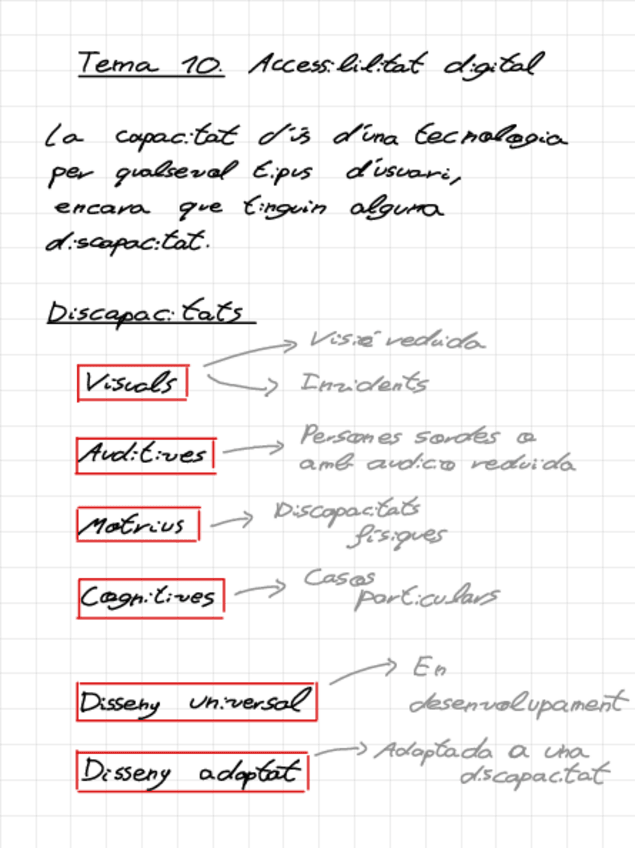 Tema 10. Accessibilitat digital
La capacitat d'ús d'una tecnologia
per qualsevol tipus d'usuari,
encara que tinguin alguna
discapacitat.
Discapacitats
Visió reduida
Visuals
Invidents
Auditives
Persones sordes o
amb audico reduida
Motrius
Discapactats
físiques
Cognitives
Casos
particulars
Disseny universal
En
desenvolupament
Disseny adaptat
Adaptada a una
discapactat